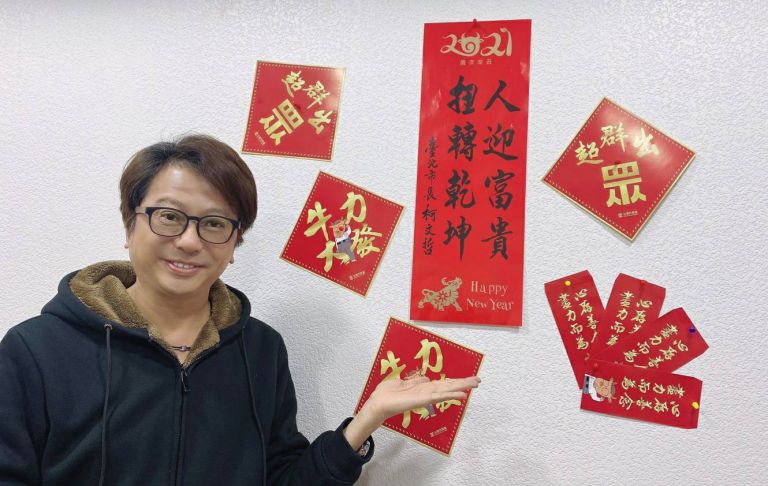 2021
歲次辛丑
人迎富貴
扭轉乾坤
臺北市長 柯文哲
Happy
New Year
超群出
眾
牛力
大發
牛力
發
超群出
眾
心存善
盡力而為
心存善
盡力而為
心存善
盡力而為
心存善念
盡力而為